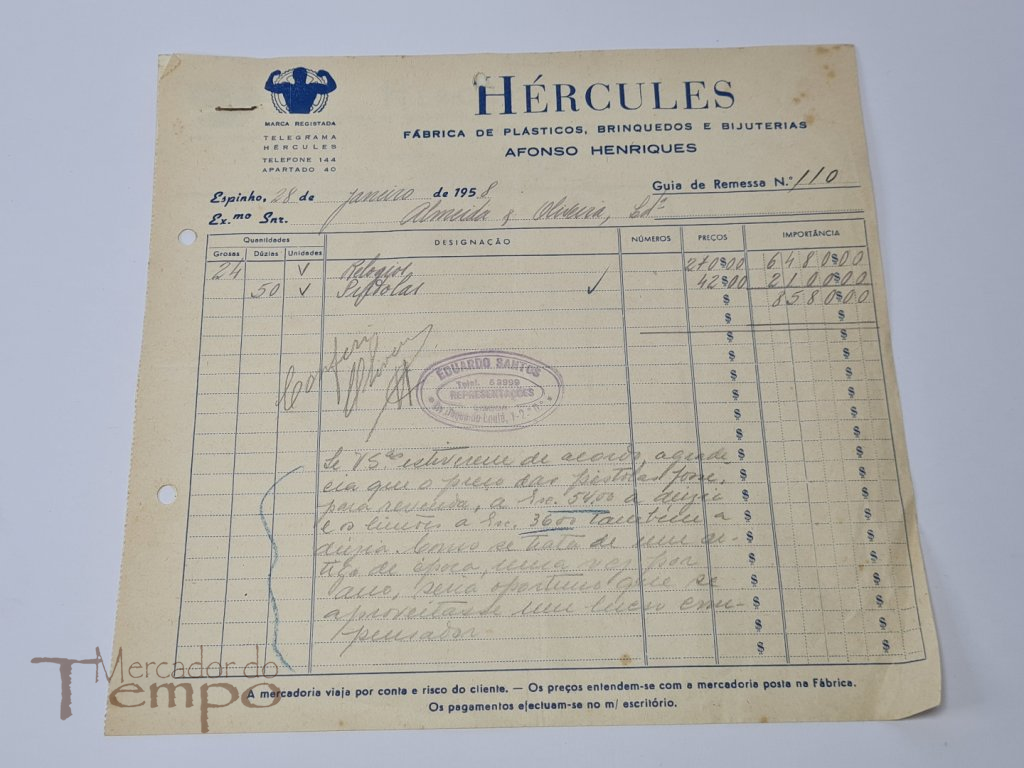 HÉRCULES
MARCA REGISTADA
FÁBRICA DE PLÁSTICOS, BRINQUEDOS E BIJUTERIAS
TELEGRAMA
HÉRCULES
AFONSO HENRIQUES
TELEFONE 144
APARTADO 40
Guia de Remessa N.º 110
Espinho, 28 de Janeiro de 1958
Ex.mo Snr. Almeida & Oliveira, Ldª
Quantidades DESIGNAÇÃO NÚMEROS PREÇOS IMPORTÂNCIA
Grosas Dúzias Unidades
24 Relogios 270$00 6480$00
50 Pistolas 42$00 2100$00
8580$00
$ $
$ $
$ $
$ $
Conferi
EDUARDO SANTOS
REPRESENTAÇÕES
$ $
$ $
$ $
Se VSªs estiverem de acordo, agrade-
cia que o preço das pistolas fosse,
para revenda, a Esc. 54$00 a duzia
e os a Esc. 36$00 tambem a
duzia. Como se trata de um ar-
tigo de época, uma vez por
ano, seria oportuno que se
aproveitasse um lucro com-
pensador.
Mercador do
Tempo
A mercadoria viaja por conta e risco do cliente. — Os preços entendem-se com a mercadoria posta na Fábrica.
Os pagamentos efectuam-se no m/ escritório.